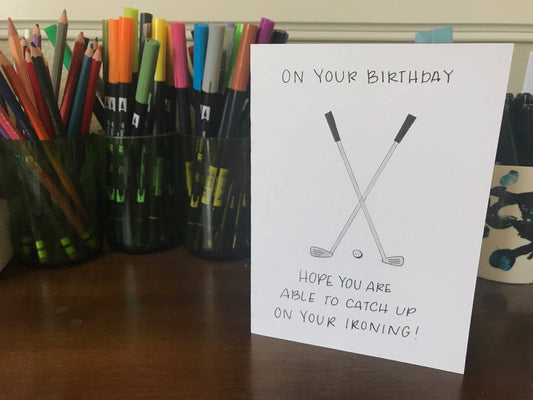 ON YOUR BIRTHDAY
HOPE YOU ARE
ABLE TO CATCH UP
ON YOUR IRONING!